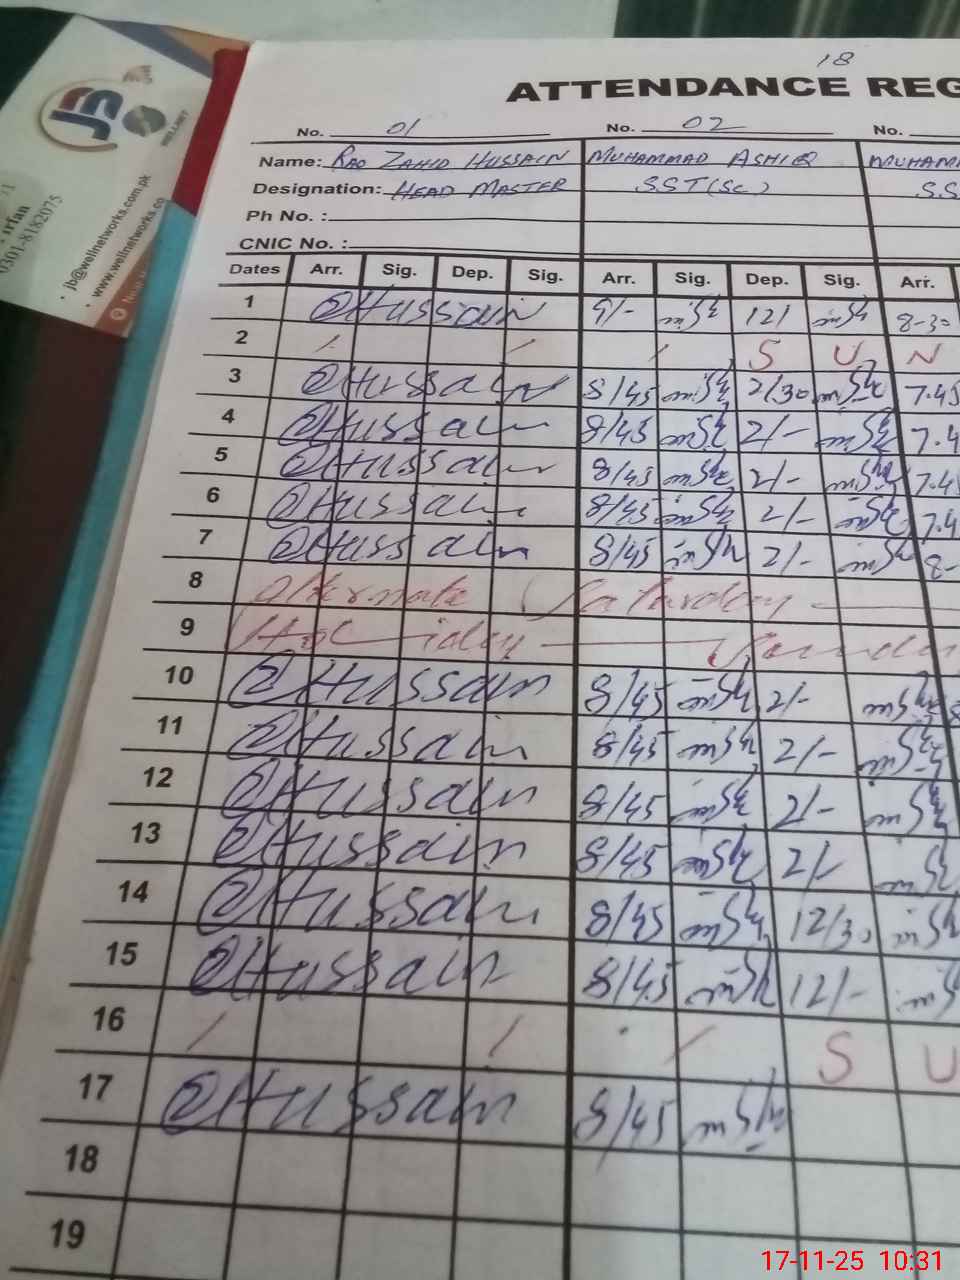 18
ATTENDANCE REG
No. 01 No. 02 No.
Name: RAO ZAHID HUSSAIN MUHAMMAD ASHIQ MUHAMM
Designation: HEAD MASTER SST(SC) SS
Ph No. :
CNIC No. :
Dates Arr. Sig. Dep. Sig. Arr. Sig. Dep. Sig. Arr.
1 Hussain 9/- 12/ 8-30
2 / / / S U N
3 Hussain 8/45 2/30 7.45
4 Hussain 8/45 2/- 7.4
5 Hussain 8/45 2/- 7.45
6 Hussain 8/45 2/- 7.4
7 Hussain 8/45 2/- 8-
8 Alternate Saturday
9 Holiday Sunda
10 Hussain 8/45 2/- 8
11 Hussain 8/45 2/-
12 Hussain 8/45 2/-
13 Hussain 8/45 2/
14 Hussain 8/45 12/30
15 Hussain 8/45 12/-
16 / / / S U
17 Hussain 8/45
18
19
JB
WELLNET
Irfan
0301-8182075
jb@wellnetworks.com.pk
www.wellnetworks.co
17-11-25 10:31